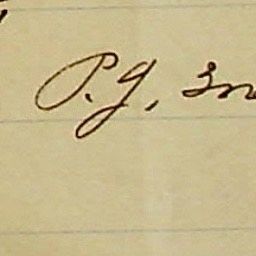 P. G. In